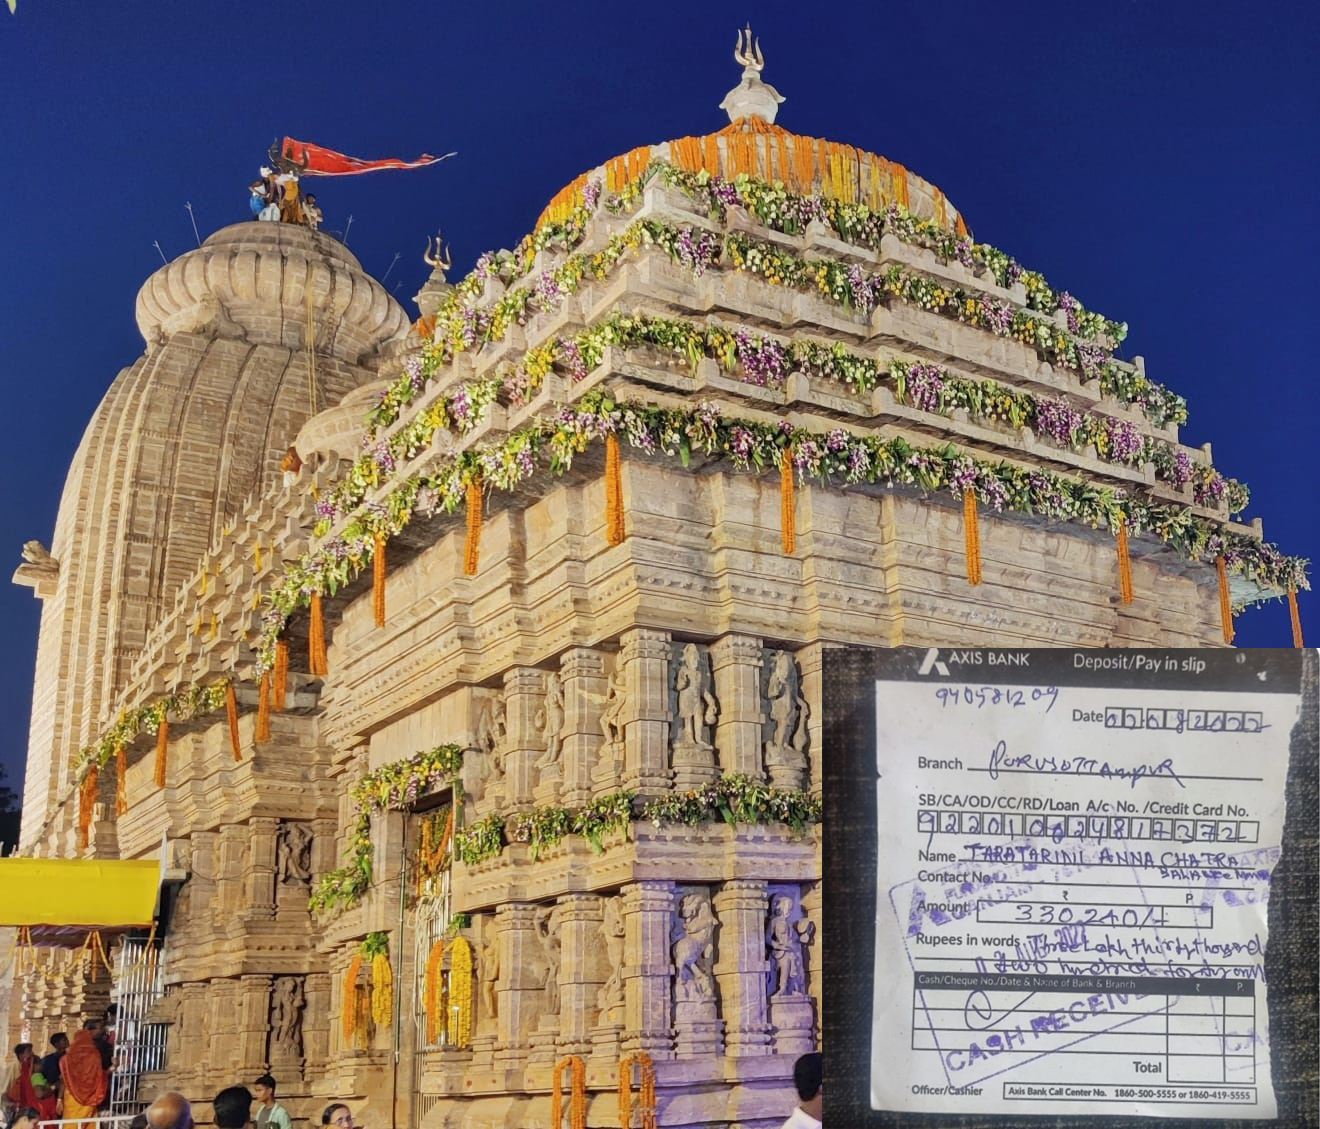 AXIS BANK Deposit/Pay in slip
9405812 09
Date 02082022
Branch PURUSOTTAMPUR
SB/CA/OD/CC/RD/Loan A/c No. /Credit Card No.
922010024817372
Name TARATARINI ANNA CHATRA
Contact No.
₹ P.
Amount 330,240/-
Rupees in words Three Lakh thirty thousand
two hundred forty only
Cash/Cheque No./Date & Name of Bank & Branch ₹ P.
CASH RECEIVE
Total
Officer/Cashier Axis Bank Call Center No. 1860-500-5555 or 1860-419-5555